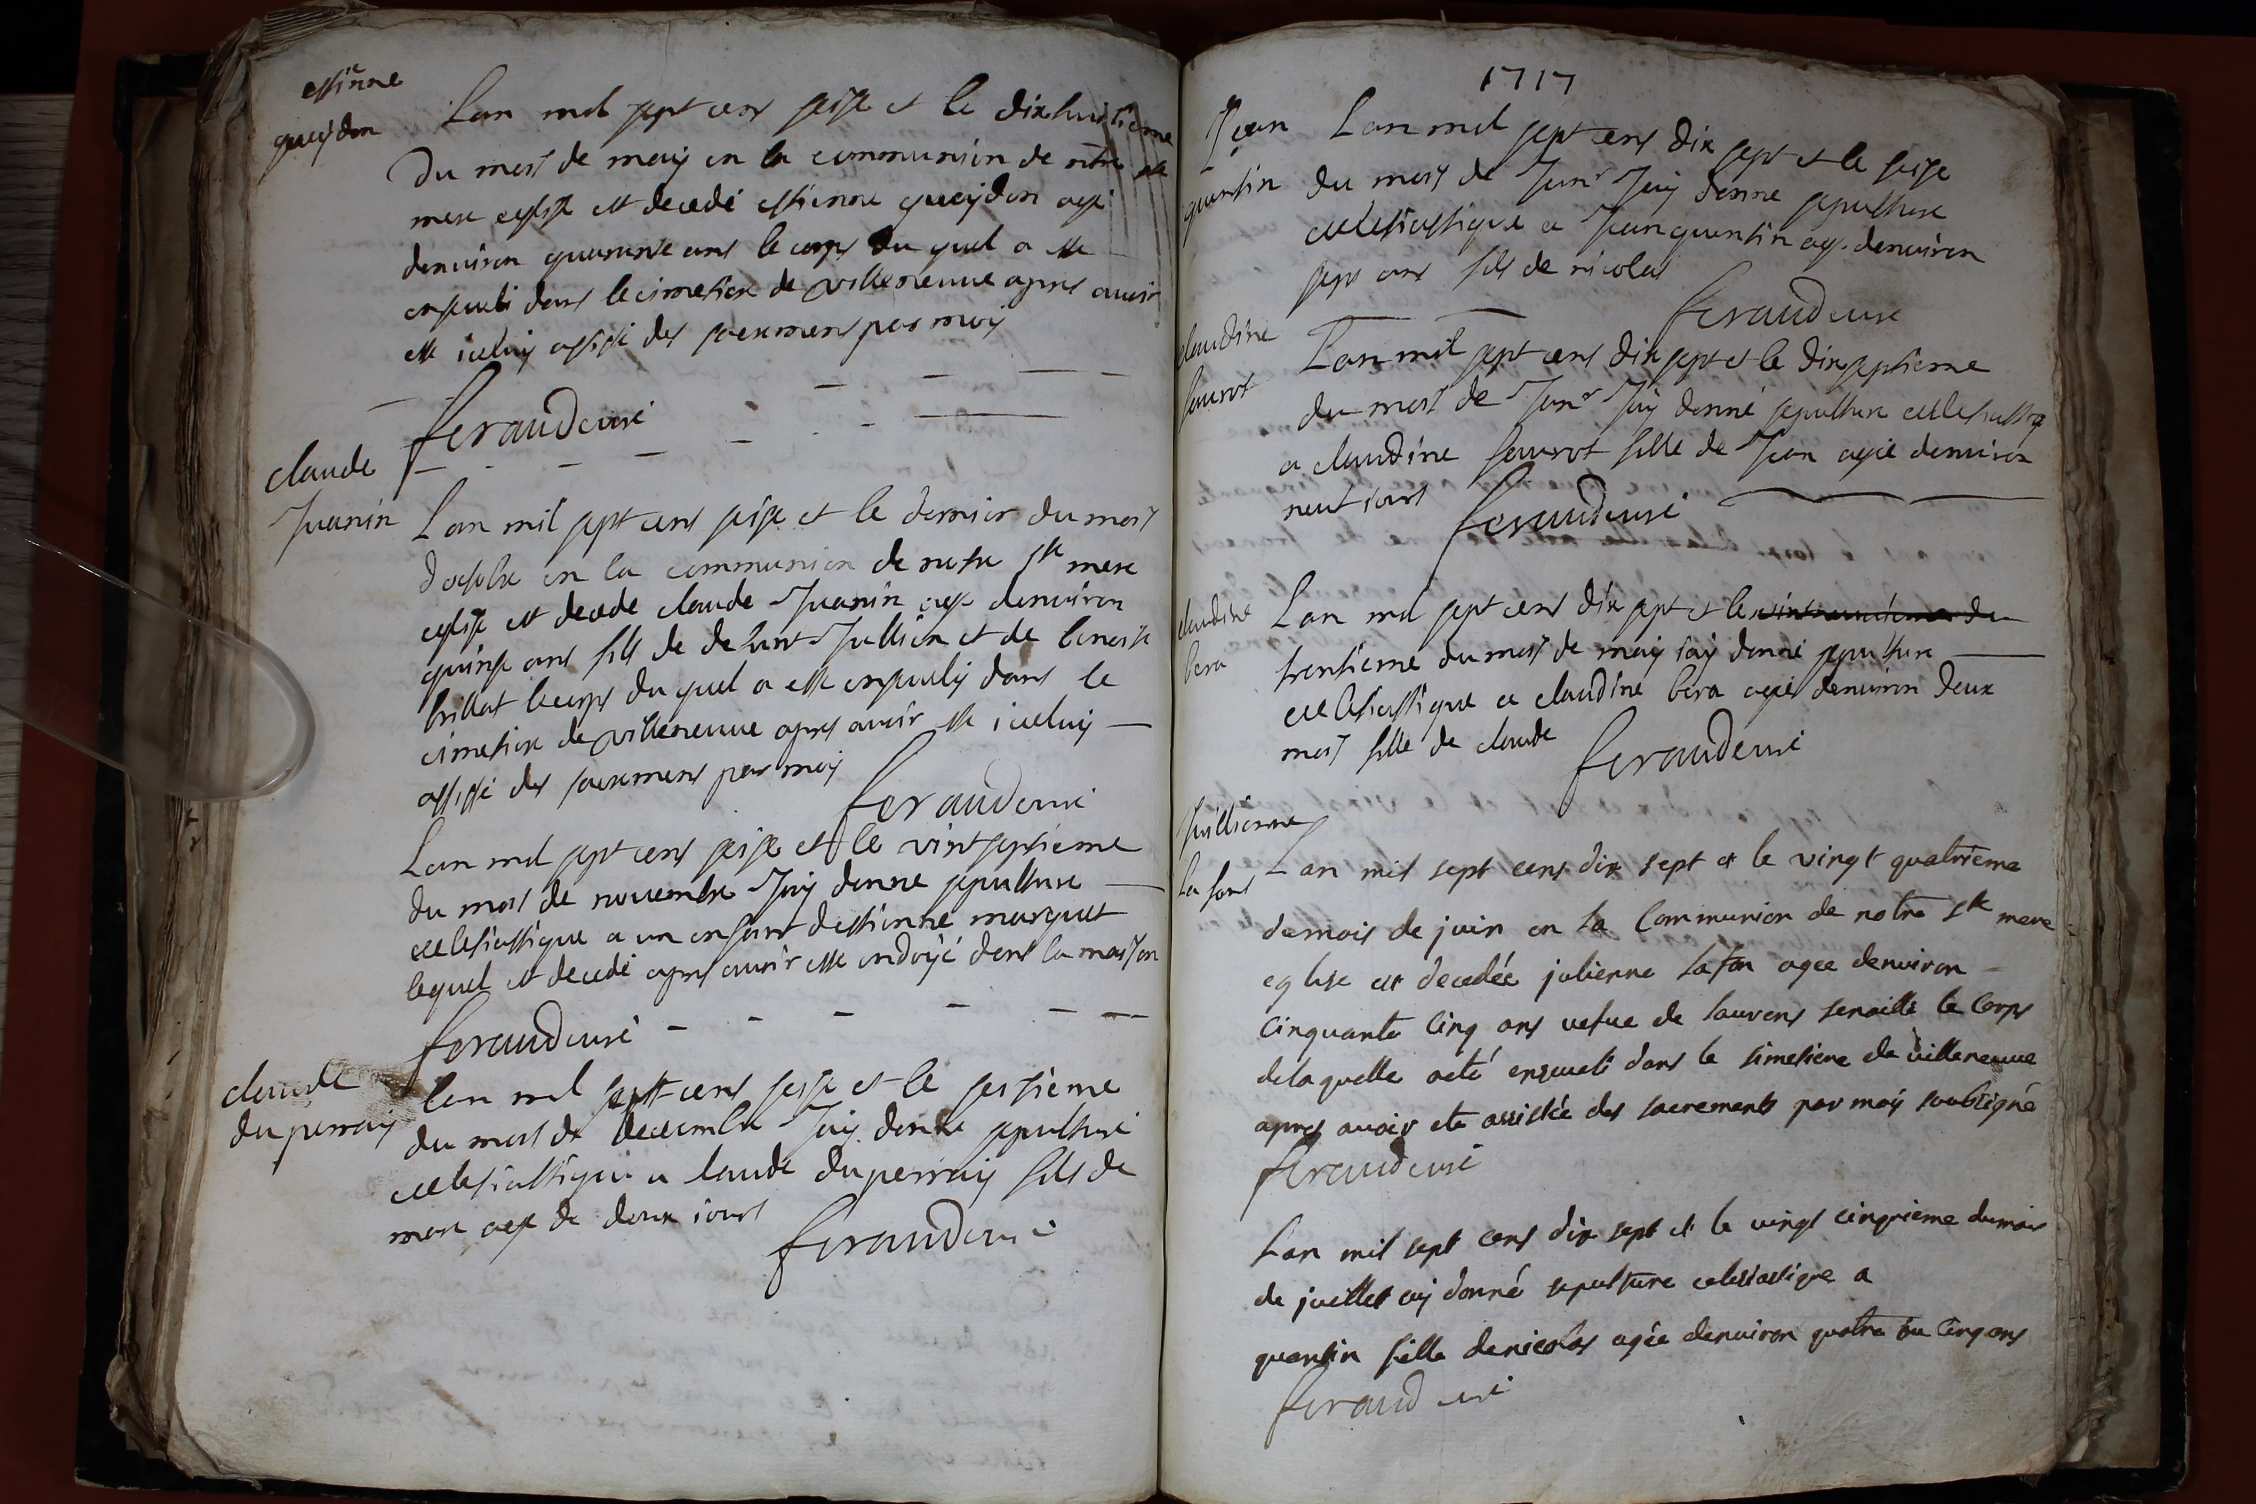 estiene
gueydon
Lan mil sept cens seise et le dixhuitieme
du mois de may en la communion de ntre ste
mere eglise est decedé estienne gueydon agé
denviron quarante ans le corps du quel a esté
enseveli dans le cimetiere de villeneuve apres avoir
esté iceluy assisté des sacremens par moy
feraud curé
claude
Juanin
Lan mil sept cens seise et le dernier du mois
doctobre en la communion de notre ste mere
eglise est decede claude Juanin agé denviron
quinse ans fils de defunt Jullien et de benoiste
brillat le corps du quel a esté ensevely dans le
cimetiere de villeneuve apres avoir esté iceluy
assisté des sacremens par moy
feraud curé
Lan mil sept cens seise et le vint septieme
du mois de novembre Jay donné sepulture
ecclesiastique a un enfant destienne marquet
lequel est decedé apres avoir esté ondoyé dans la maison
feraud curé
claude
du perray
Lan mil sept cens seise et le seisieme
du mois de decembre Jay donné sepulture
ecclesiastique a laude du perray fils de
marc agé de deux jours
feraud curé
1717
Jean
quantin
Lan mil sept cens dix sept et le seise
du mois de Janr Jay donné sepulture
ecclesiastique a Jean quantin agé denviron
sept ans fils de nicolas
feraud curé
claudine
saurot
Lan mil sept cens dix sept et le dixseptieme
du mois de Janr Jay donné sepulture ecclesiastiq
a claudine saurot fille de Jean agée denviron
neuf jours
feraud curé
claudine
bera
Lan mil sept cens dix sept et le du
trentieme du mois de may jay donné sepulture
ecclesiastique a claudine bera agée denviron deux
mois fille de claude
feraud curé
Jullienne
la font
Lan mil sept cens dix sept et le vingt quatrieme
de mois de juin en la Communion de notre ste mere
eglise est decedée julienne lafon agée denviron
cinquante cinq ans vefue de laurens senaille le Corps
de laquelle a eté enseveli dans le simetiere de villeneuve
apres avoir ete assistée des sacrements par moy soubsigné
feraud curé
Lan mil sept cens dix sept et le vingt cinqieme du mois
de juillet ay donné sepulture eclesiastique a
quantin fille de nicolas agée denviron quatre ou cinq ans
feraud curé